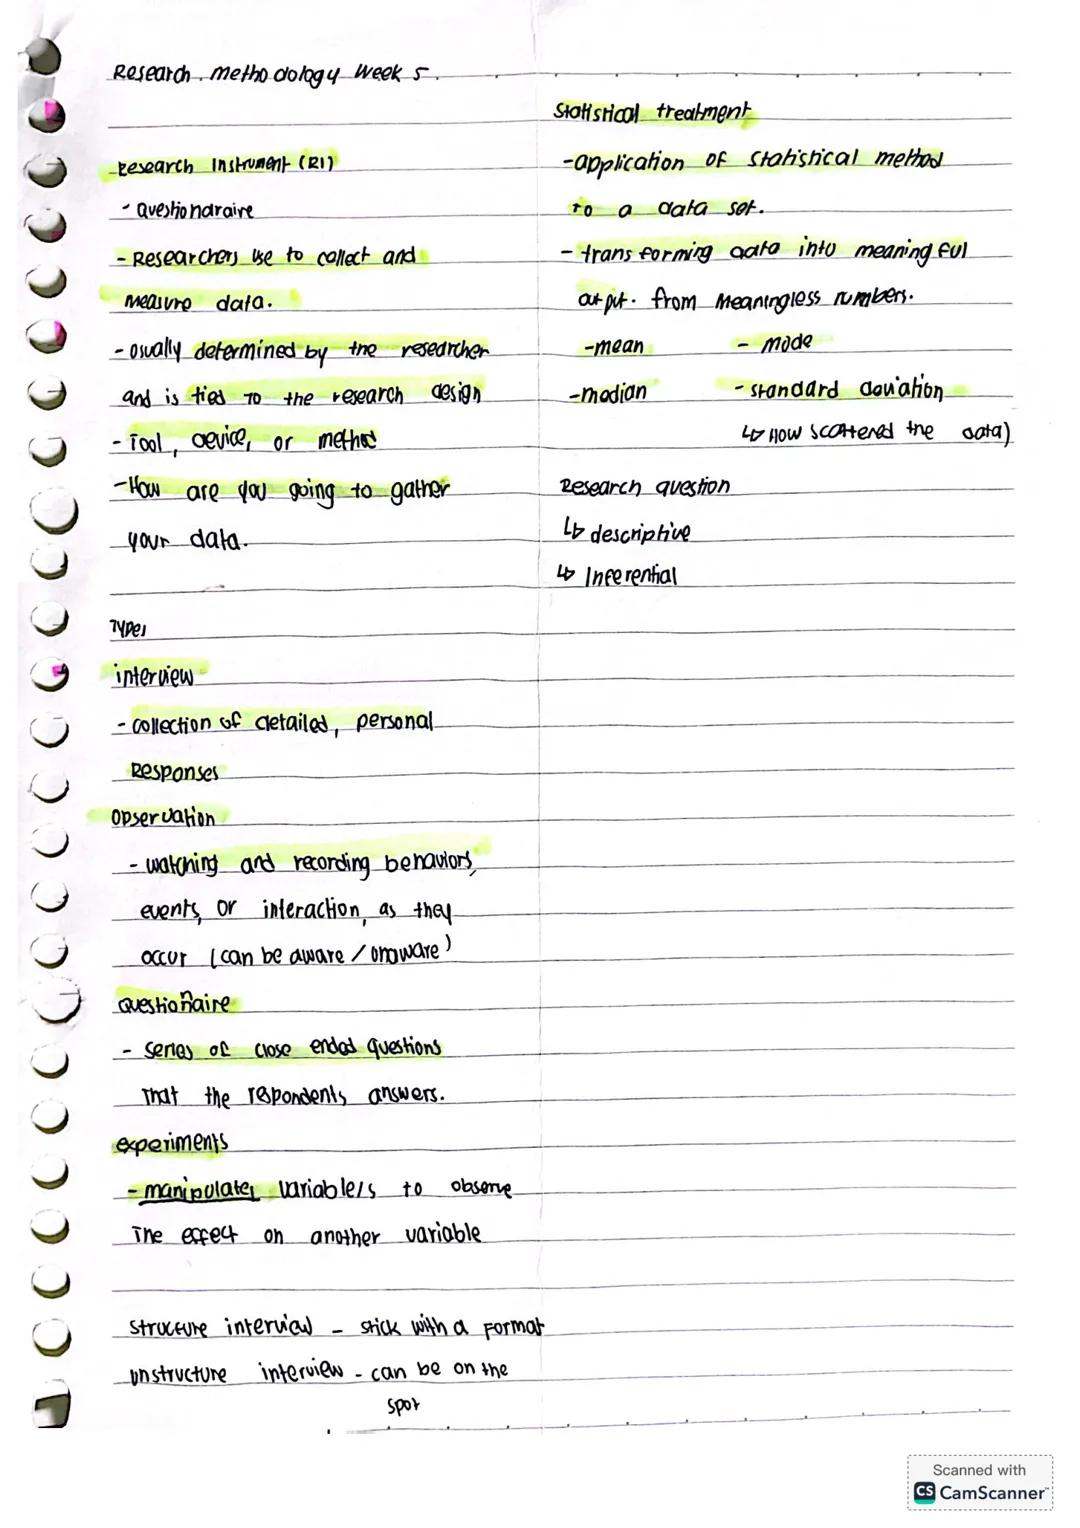 Research methodology Week 5.
Research Instrument (RI)
- Questiondraire
- Researchers use to collect and
measure data.
- usually determined by the researcher
and is tied to the research design
- Tool, device, or method
- How are you going to gather
your data.
Types
interview
- collection of detailed, personal
Responses
Observation
- watching and recording behaviors,
events, or interaction, as they
occur (can be aware / unaware)
questionaire
- series of close ended questions
That the respondents answers.
experiments
- manipulates variable/s to observe
The effect on another variable
structure interview - stick with a format
unstructure interview - can be on the
spot
Statistical treatment
- application of statistical method
to a data set.
- transforming data into meaningful
output. from meaningless numbers.
- mean - mode
- median - standard deviation
↳ How scattered the data)
Research question
↳ descriptive
↳ Inferential
Scanned with
CS CamScanner